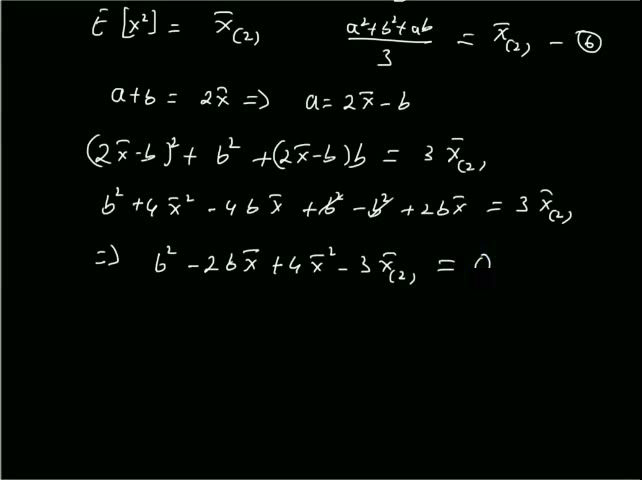 E [x²] = x̄₍₂₎   (a²+b²+ab)/3 = x̄₍₂₎ – ⑥
a+b = 2x̄ => a = 2x̄ - b
(2x̄-b)² + b² + (2x̄-b)b = 3 x̄₍₂₎
b² + 4x̄² - 4bx̄ + b² - b² + 2bx̄ = 3 x̄₍₂₎
=> b² - 2bx̄ + 4x̄² - 3x̄₍₂₎ = 0